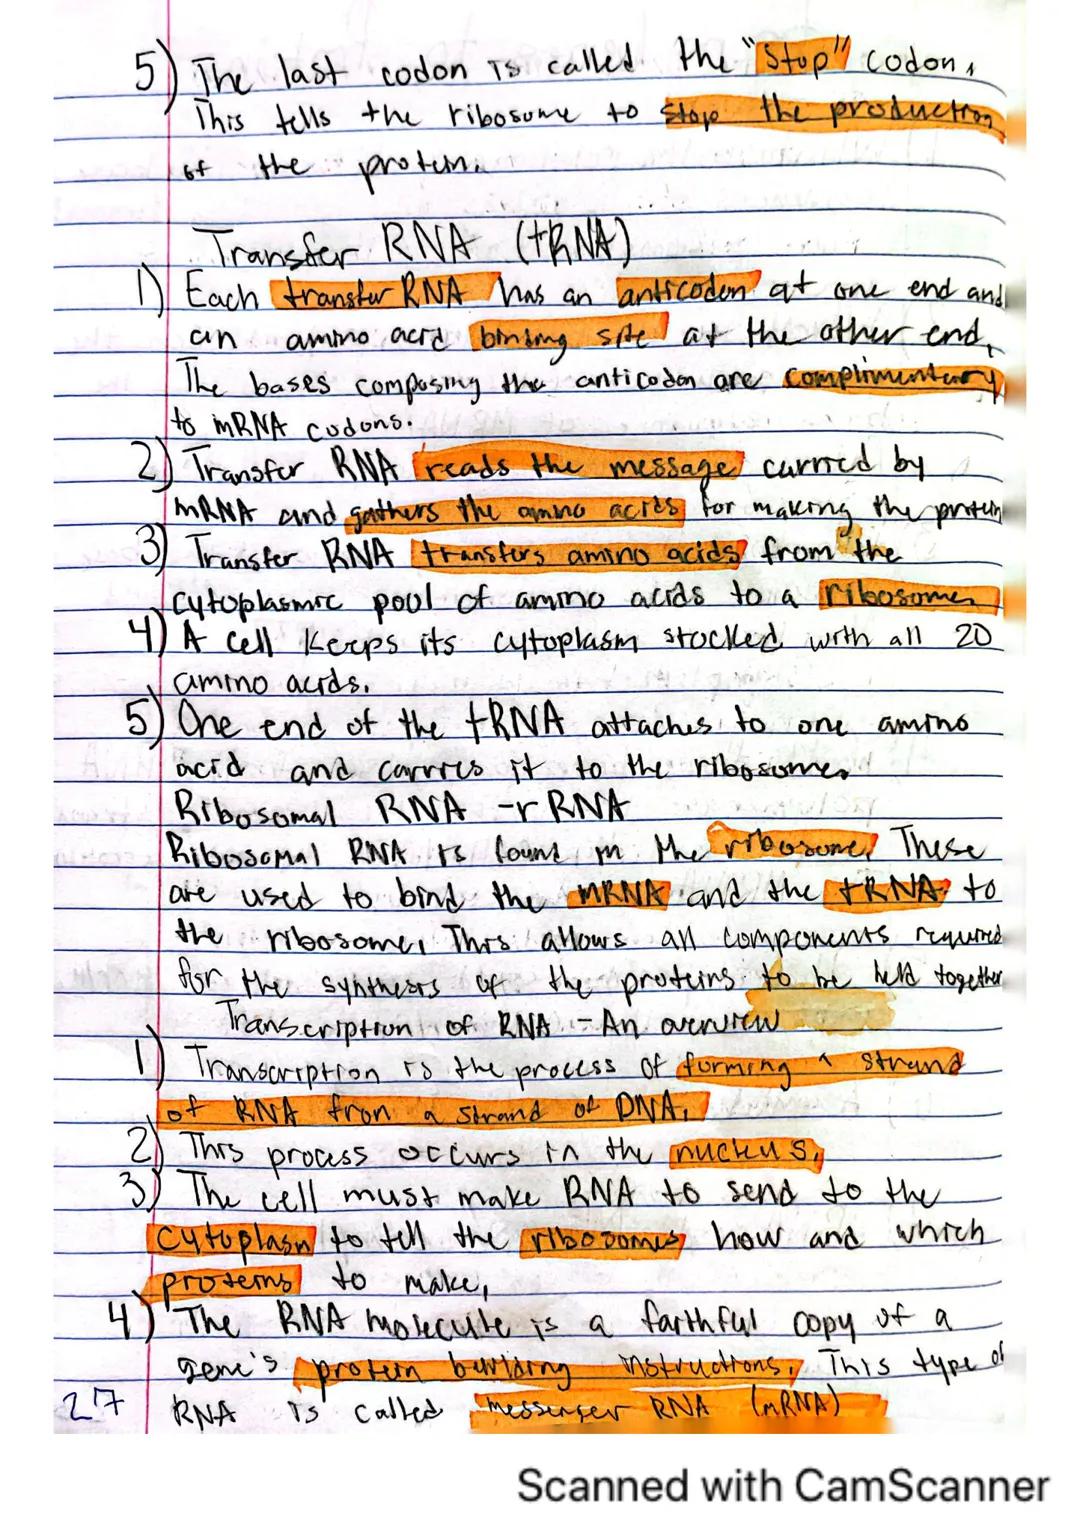 5) The last codon is called the "Stop" codon.
This tells the ribosome to stop the production
of the protein.
Transfer RNA (tRNA)
1) Each transfer RNA has an anticodon at one end and
an amino acid binding site at the other end.
The bases composing the anticodon are complimentary
to mRNA codons.
2) Transfer RNA reads the message carried by
mRNA and gathers the amino acids for making the protein
3) Transfer RNA transfers amino acids from the
cytoplasmic pool of amino acids to a ribosome.
4) A cell keeps its cytoplasm stocked with all 20
amino acids.
5) One end of the tRNA attaches to one amino
acid and carries it to the ribosome.
Ribosomal RNA - rRNA
Ribosomal RNA is found in the ribosome. These
are used to bind the mRNA and the tRNA to
the ribosome. This allows all components required
for the synthesis of the proteins to be held together
Transcription of RNA - An overview
1) Transcription is the process of forming a strand
of RNA from a strand of DNA.
2) This process occurs in the nucleus.
3) The cell must make RNA to send to the
cytoplasm to tell the ribosomes how and which
proteins to make.
4) The RNA molecule is a faithful copy of a
gene's protein building instructions. This type of
27 RNA is called messenger RNA (mRNA)
Scanned with CamScanner